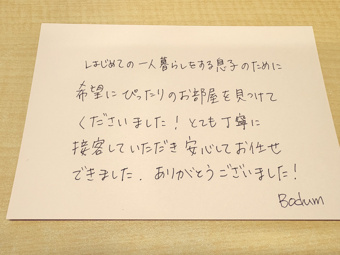 はじめての一人暮らしをする息子のために
希望にぴったりのお部屋を見つけて
くださいました！とても丁寧に
接客していただき安心してお任せ
できました．ありがとうございました！
Bodum